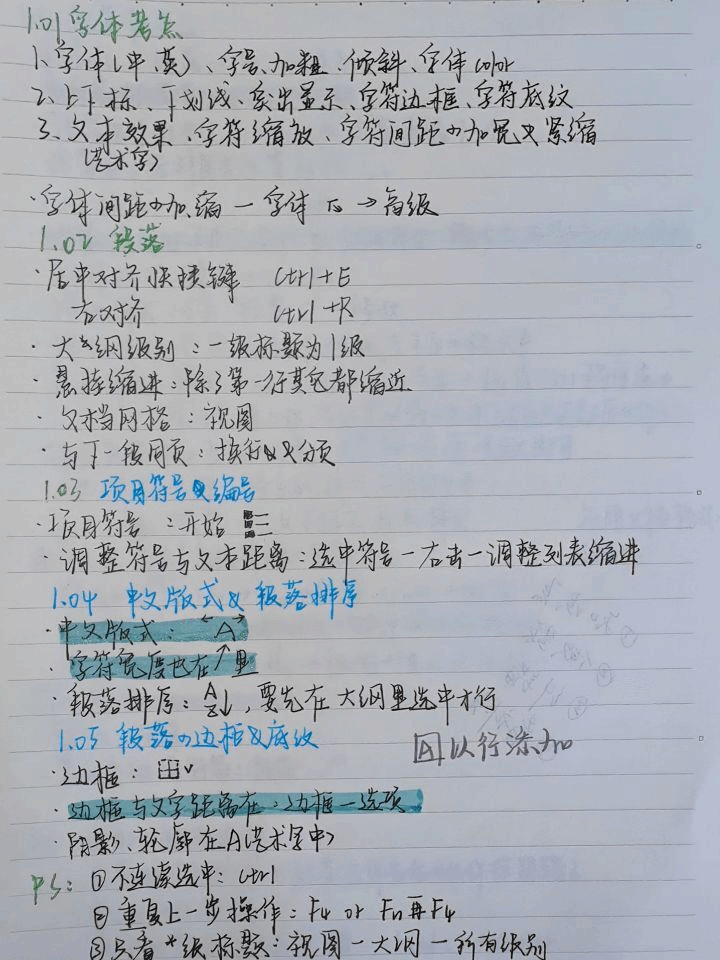 1.01 字体考点
1、字体(中、英)、字号、加粗、倾斜、字体color
2、上下标、下划线、突出显示、字符边框、字符底纹
3、文本效果、字符缩放、字符间距の加宽&紧缩
(艺术字)
·字体间距の加、缩 — 字体 → 高级
1.02 段落
·居中对齐快捷键 Ctrl+E
右对齐 Ctrl+R
·大纲级别:一级标题为1级
·悬挂缩进:除了第一行其它都缩近
·文档网格:视图
·与下一段同页:换行&分页
1.03 项目符号&编号
·项目符号:开始
·调整符号与文本距离:选中符号—右击—调整列表缩进
1.04 中文版式&段落排序
·中文版式: A
·字符宽度也在↑里
·段落排序: AZ↓,要先在大纲里选中才行
1.05 段落の边框&底纹
A 以行添加
·边框:田∨
·边框与文字距离在:边框—选项
·阴影、轮廓在A(艺术字中)
PS: ①不连续选中:ctrl
②重复上一步操作:F4 or Fn再F4
③只看*级标题:视图—大纲—所有级别